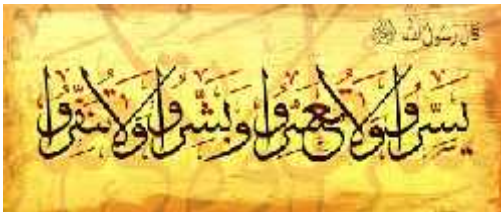 قال رسول الله ﷺ
يسروا ولا تعسروا وبشروا ولا تنفروا